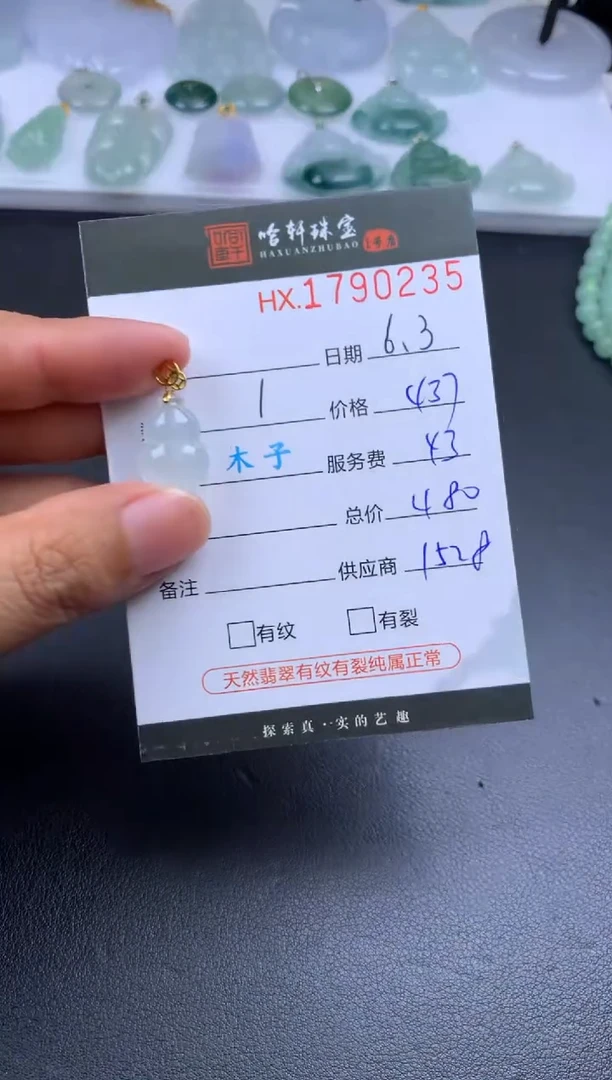 哈轩珠宝
HAXUANZHUBAO
HX.1790235
日期 6.3
1 价格 437
木子 服务费 43
总价 480
备注 供应商 1528
有纹 有裂
天然翡翠有纹有裂纯属正常
探索真··实的艺趣